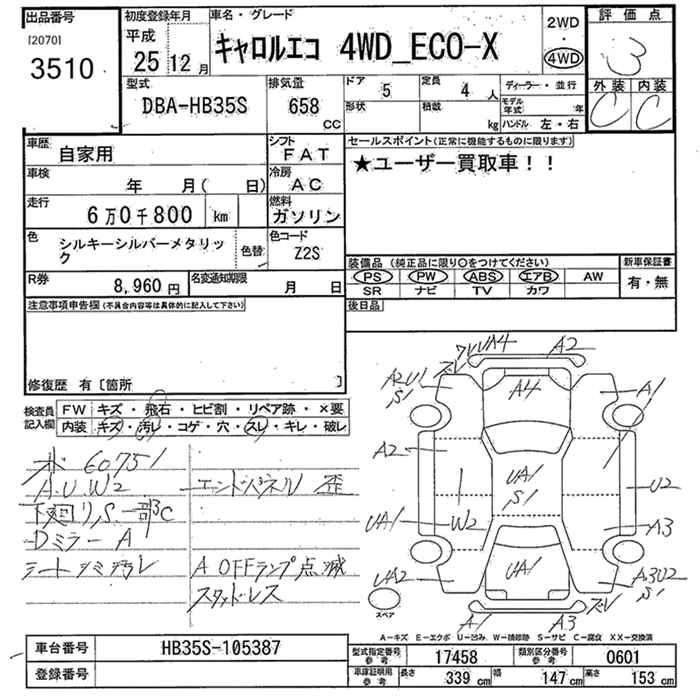 出品番号
[2070]
3510
初度登録年月
平成
25 12月
車名・グレード
キャロルエコ 4WD_ECO-X
2WD
・
4WD
評価点
3
外装 内装
C C
型式
DBA-HB35S
排気量
658
CC
ドア 5
定員 4 人
形状
積載 kg
ディーラー・並行
モデル年式 年
ハンドル 左・右
車歴
自家用
シフト
FAT
セールスポイント(正常に機能するものに限ります)
★ユーザー買取車!!
車検
年 月( 日)
冷房
AC
走行
6万0千800 km
燃料
ガソリン
色
シルキーシルバーメタリック
色替
色コード
Z2S
装備品 (純正品に限り○をつけてください)
PS PW ABS エアB AW
SR ナビ TV カワ
新車保証書
有・無
R券
8,960円
名変通知期限
月 日
後日品
注意事項申告欄(不具合内容等は具体的に記入して下さい)
修復歴 有〔箇所 〕
検査員記入欄
FW キズ・飛石・ヒビ割・リペア跡・×要
内装 キズ・汚レ・コゲ・穴・スレ・キレ・破レ
60751
A.U.W2
エンドパネル 歪
下廻リS.一部C
Dミラー A
シートシミ汚レ
A OFFランプ点滅
スタッドレス
A2
A4
A2U1
S1
A1
A2
UA1
S1
W2
U2
UA1
A3
UA2
UA1
A3U2
S1
A1
A3
スペア
A-キズ E-エクボ U-凹み W-補修跡 S-サビ C-腐食 XX-交換済
車台番号
HB35S-105387
登録番号
型式指定番号
参考
17458
類別区分番号
参考
0601
車庫証明用
参考
長さ 339 cm
幅 147 cm
高さ 153 cm